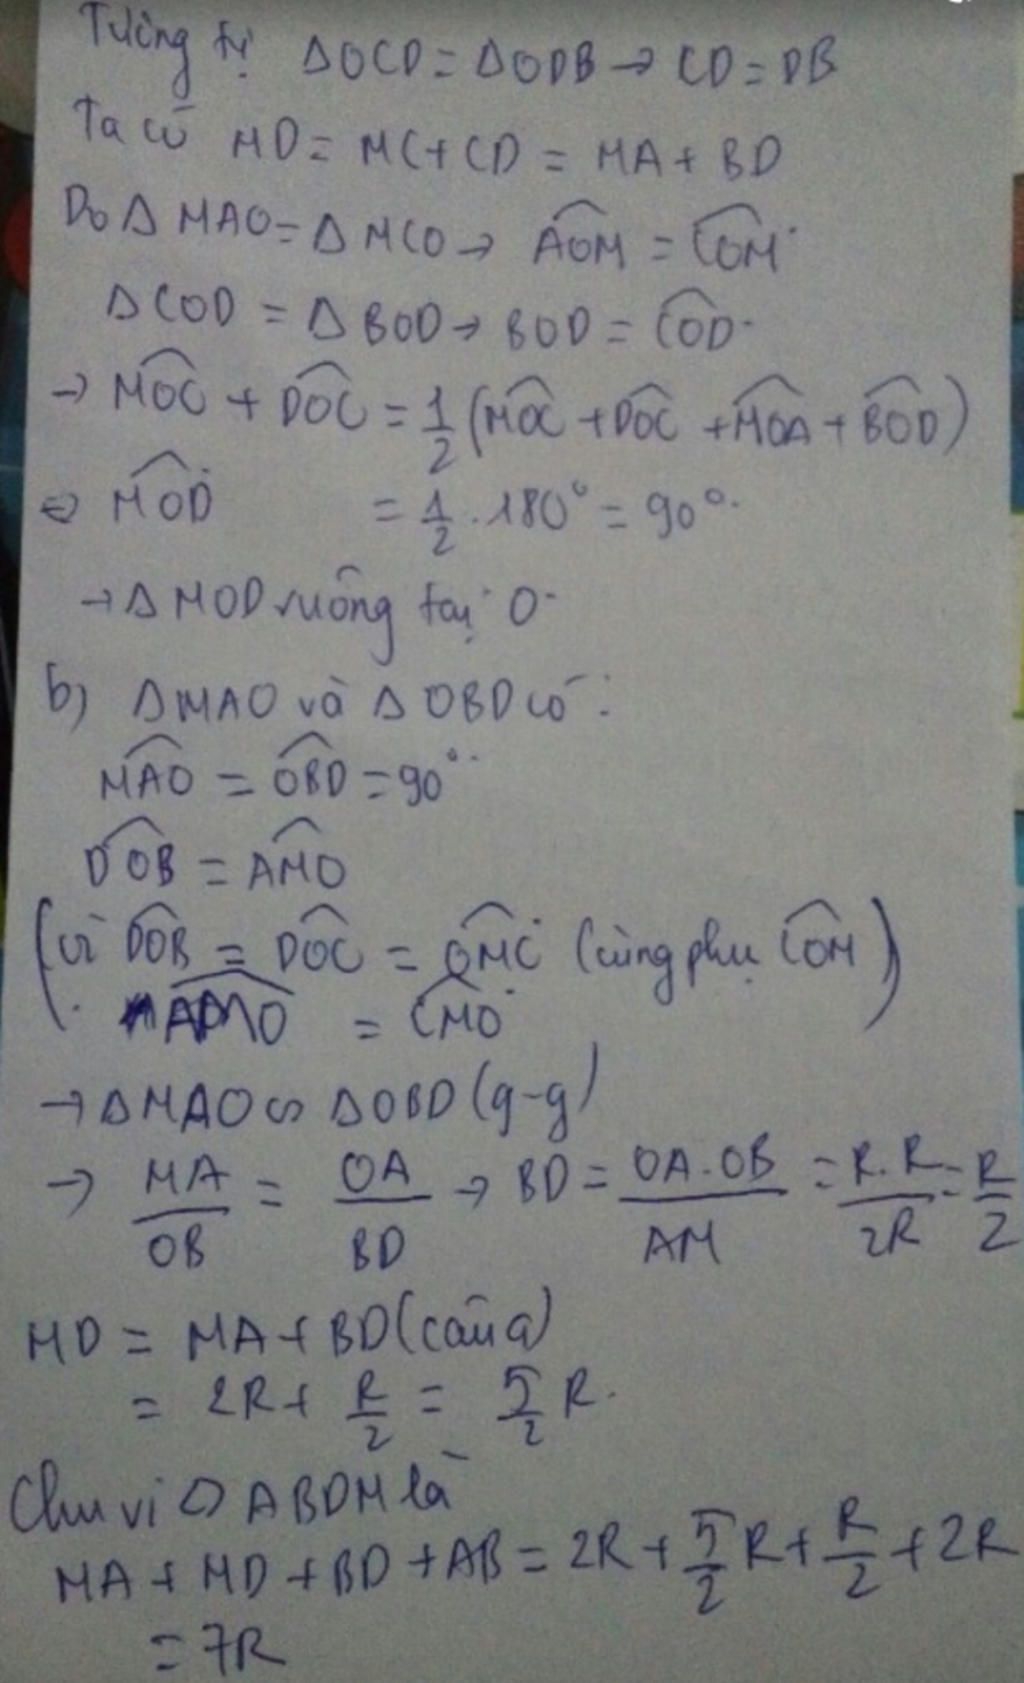 Tương tự ΔOCD = ΔODB → CD = DB
Ta có MD = MC + CD = MA + BD
Do Δ MAO = Δ MCO → \widehat{AOM} = \widehat{COM}.
ΔCOD = ΔBOD → BOD = \widehat{COD}.
→ \widehat{MOC} + \widehat{DOC} = \frac{1}{2} (\widehat{MOC} + \widehat{DOC} + \widehat{MOA} + \widehat{BOD})
⇒ \widehat{MOD} = \frac{1}{2} . 180° = 90°.
→ Δ MOD vuông tại O.
b) ΔMAO và Δ OBD có :
\widehat{MAO} = \widehat{OBD} = 90°.
\widehat{DOB} = \widehat{AMO}
(vì \widehat{DOB} = \widehat{DOC} = \widehat{OMC} (cùng phụ \widehat{COM})
\widehat{AMO} = \widehat{CMO})
→ ΔMAO ∽ ΔOBD (g-g)
→ \frac{MA}{OB} = \frac{OA}{BD} → BD = \frac{OA.OB}{AM} = \frac{R.R}{2R} = \frac{R}{2}
MD = MA + BD (câu a)
= 2R + \frac{R}{2} = \frac{5}{2} R.
Chu vi ABDM là
MA + MD + BD + AB = 2R + \frac{5}{2} R + \frac{R}{2} + 2R
= 7R